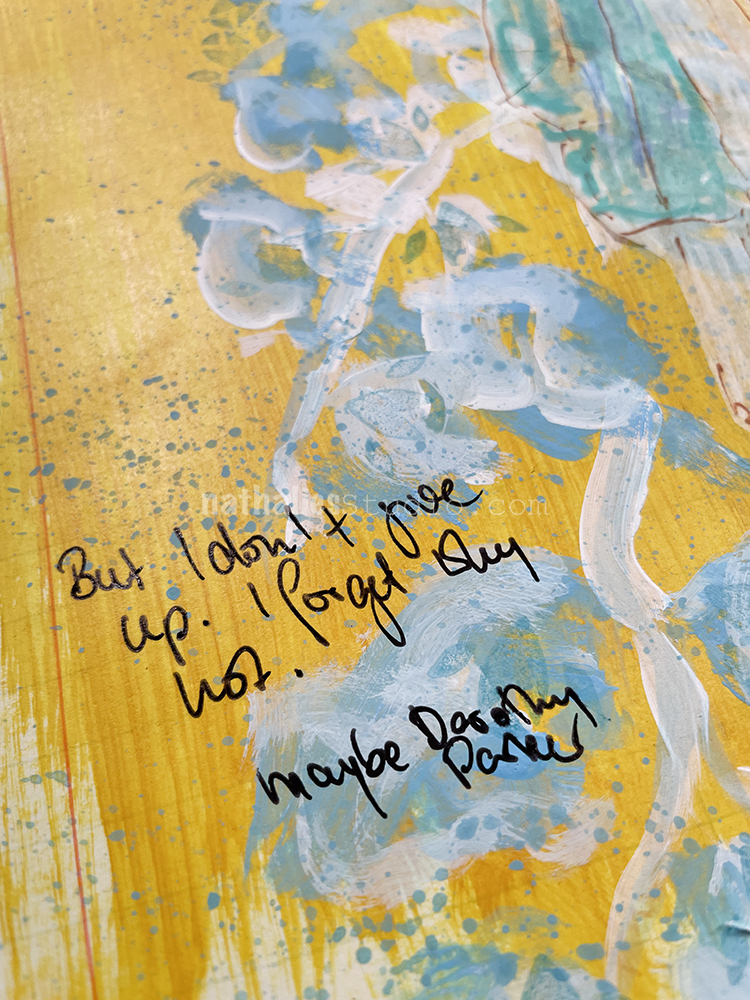 nathaliesstudio.com
But I don't give
up. I forget why
not.
maybe Dorothy
Parker